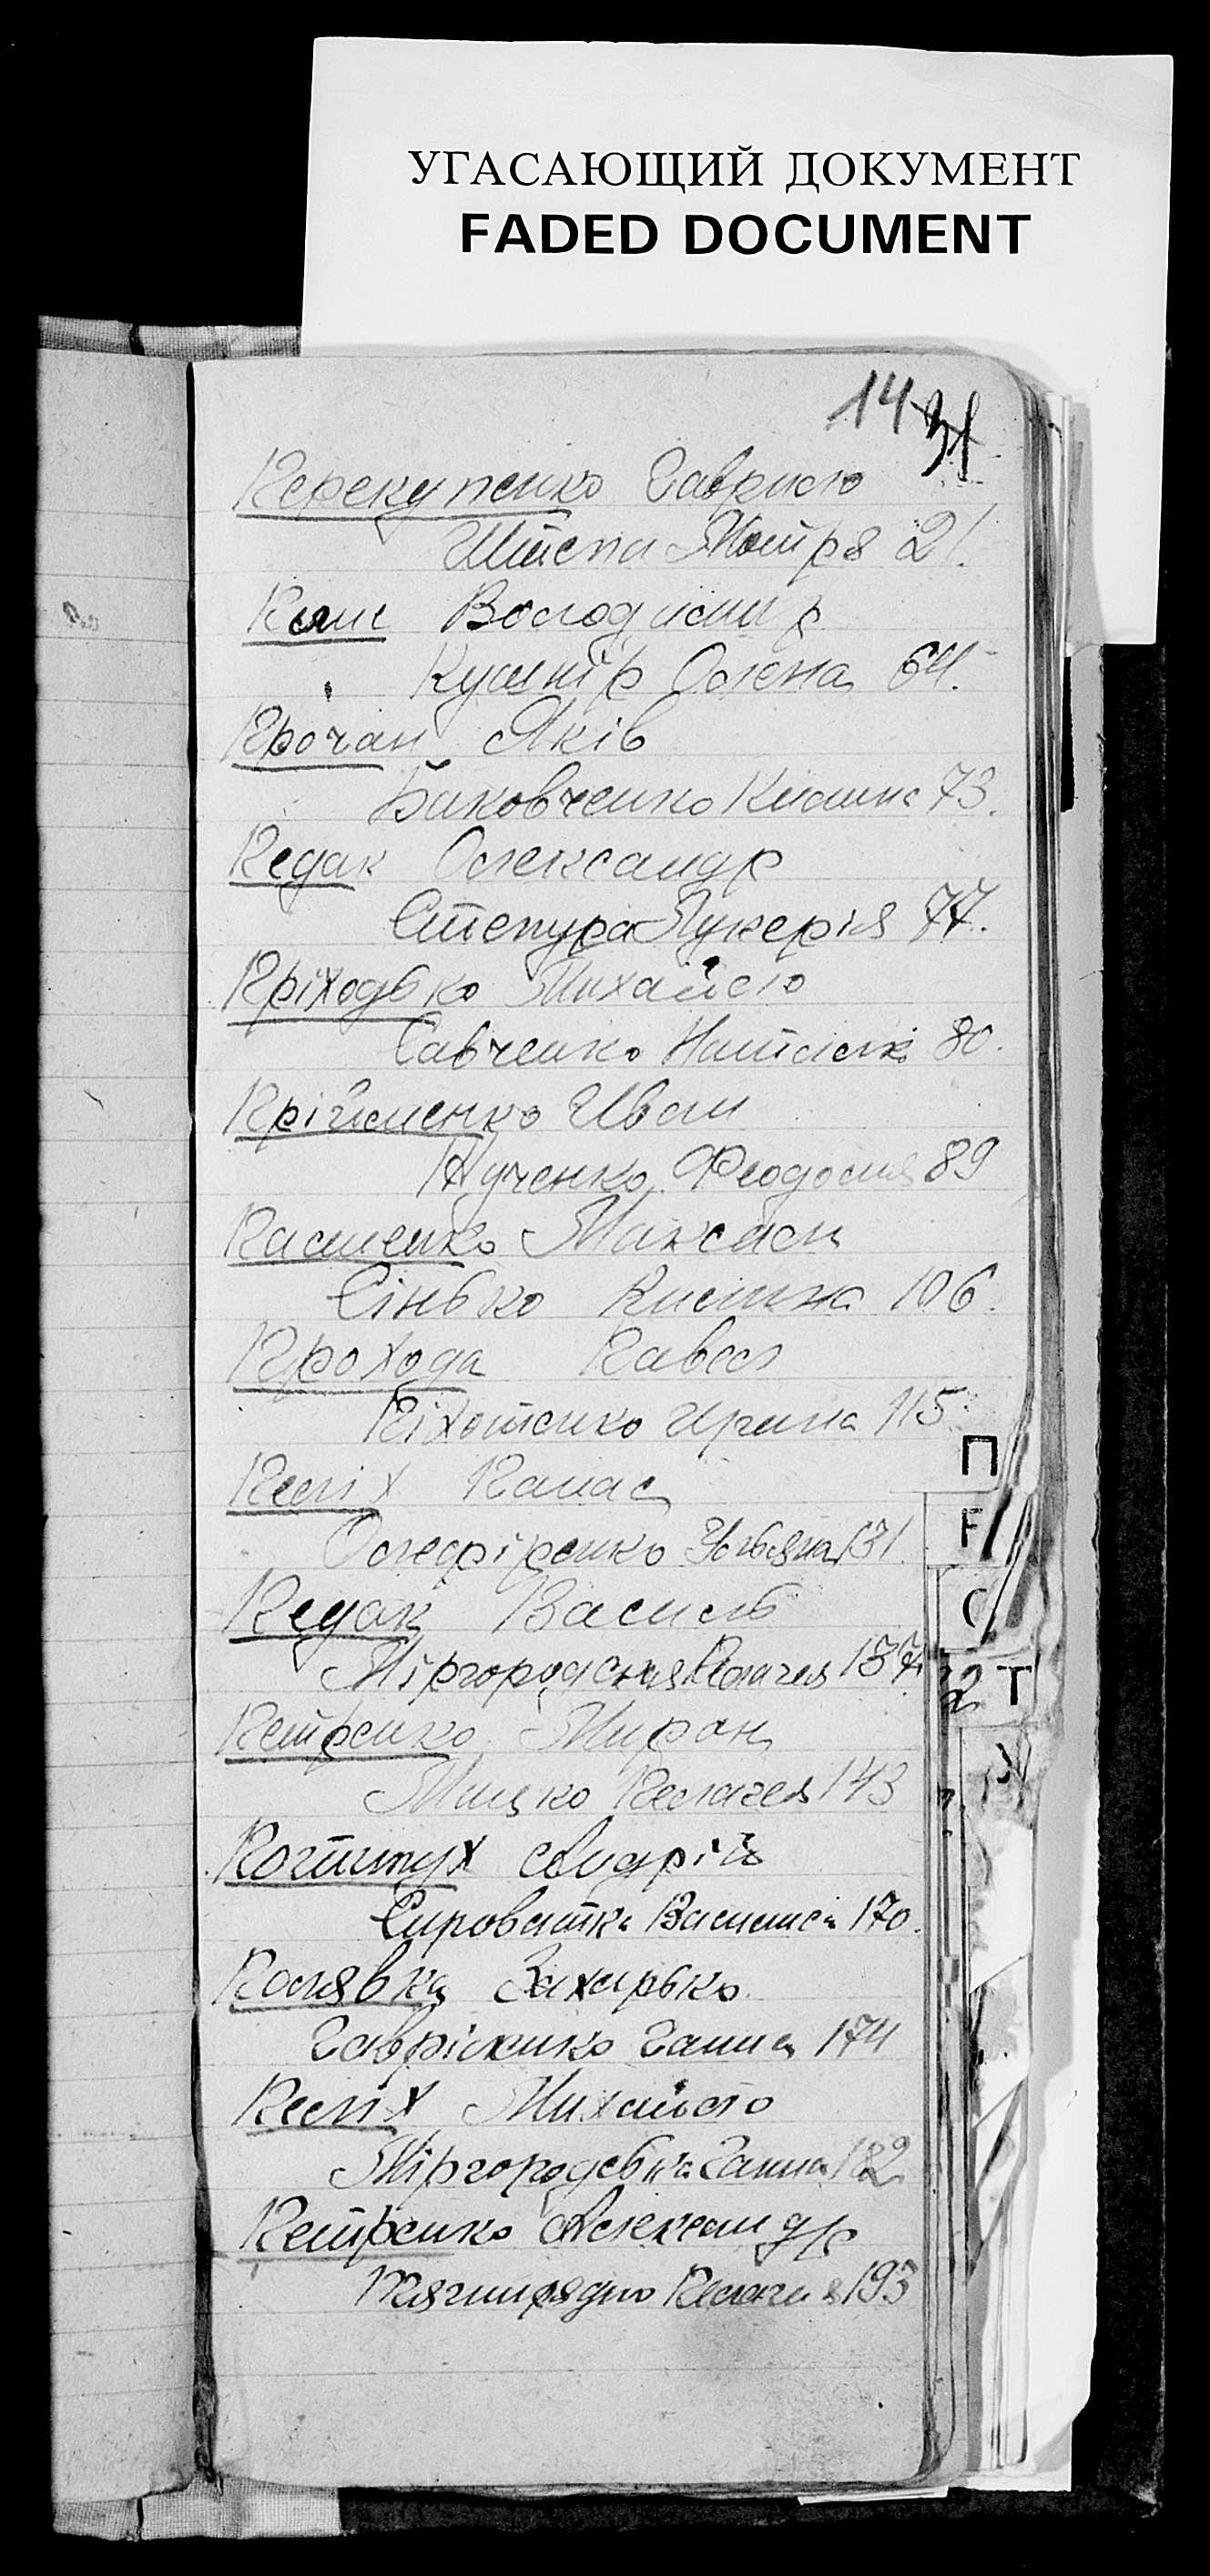 УГАСАЮЩИЙ ДОКУМЕНТ
FADED DOCUMENT
14 31
Перекупенко Гаврило
Штепа Мотря 21.
Пащ Володимир
Кушнір Олена 64.
Прочан Яків
Биковченко Килина 73.
Педак Олександр
Степура Лукерія 77.
Пріходько Михайло
Савченко Наталка 80.
Прійменко Иван
Нученко Феодосия 89
Пасменко Максим
Сінько Килина 106.
Прохода Павел
Піхотенко Ирина 115
Пеліх Панас
Олефіренко Ульяна 131.
Педак Василь
Міргородская Пелагея 137
Петренко Мирон
Мицко Пелагея 143
Поштиух Андрій
Сироватка Василиса 170.
Полявка Захарько
Гавріленко Ганна 174
Пеліх Михайло
Міргородська Ганна 182
Петренко Александр
Тягнирядно Пелагия 193
П
Р
С
Т
У